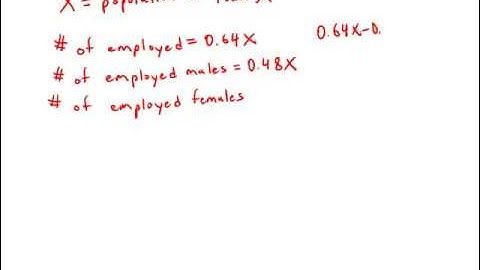 X = population
# of employed = 0.64X 0.64X-0.
# of employed males = 0.48X
# of employed females